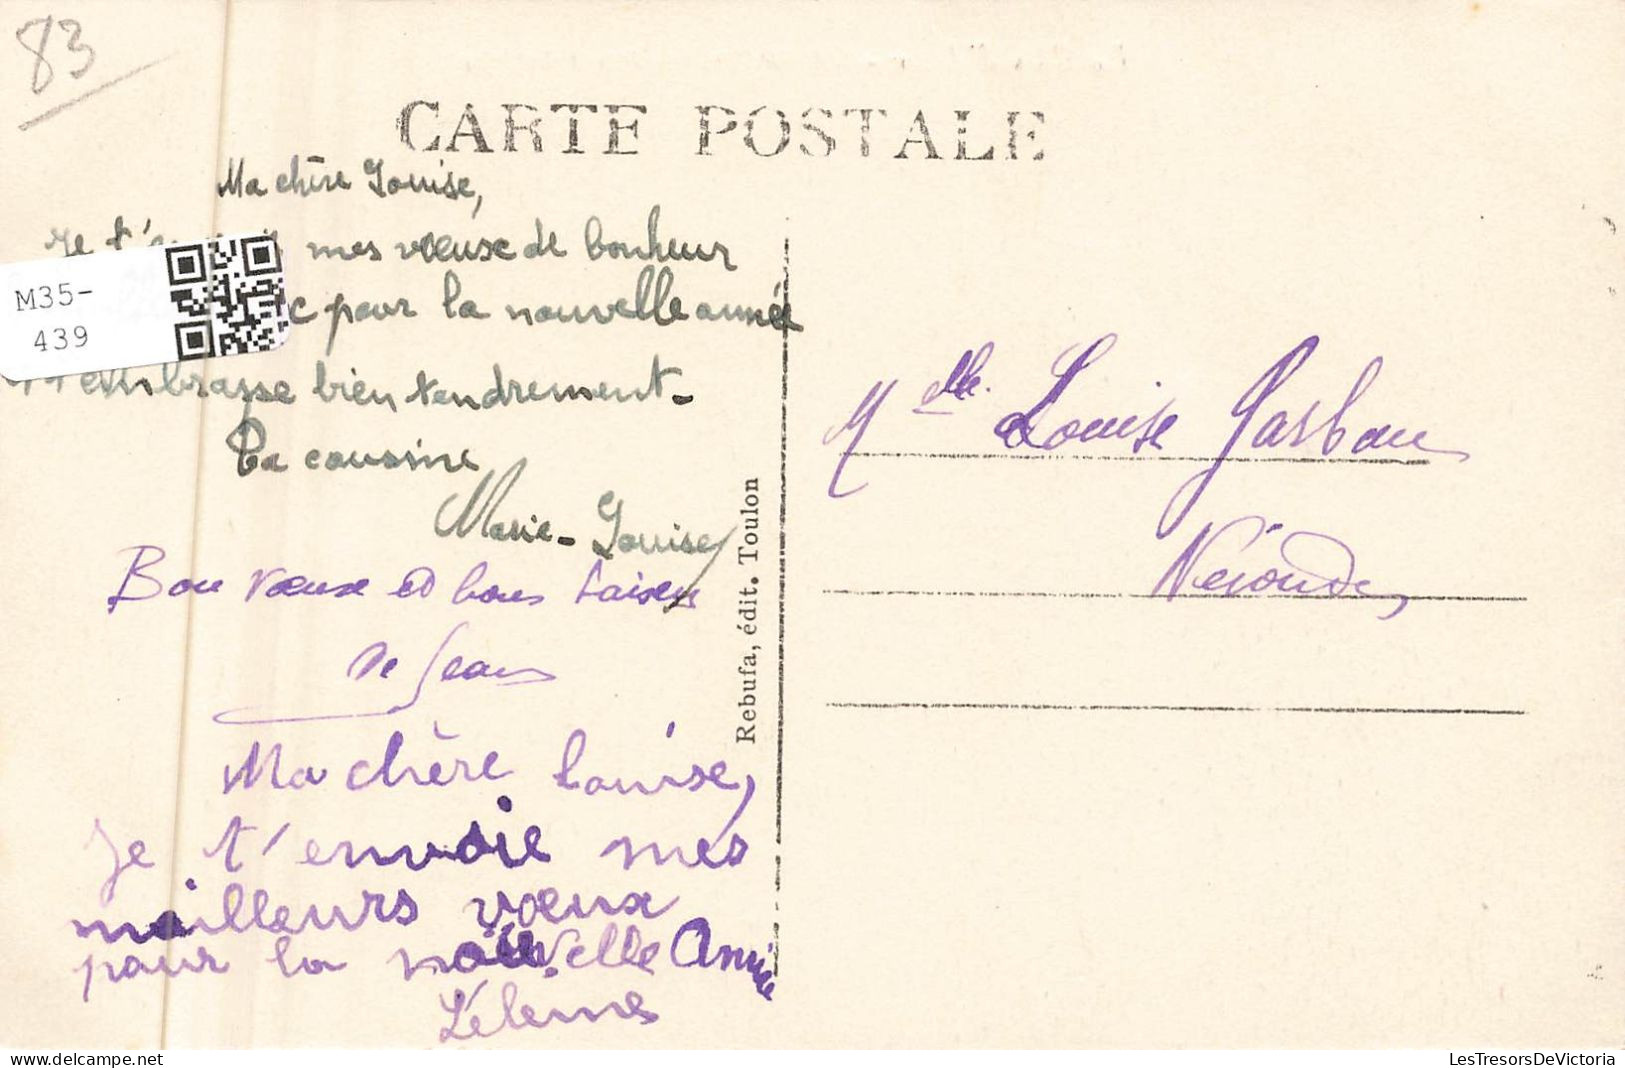 83
CARTE POSTALE
Ma chère Louise,
Je mes vœuse de bonheur
pour la nouvelle année
t'embrasse bien tendrement.
Ta cousine
Marie-Louise
Bon vœux et bons baisers
de Jean
Ma chère Louise,
Je t'envoie mes
meilleurs vœux
pour la nouvelle Année
M35-
439
Rebufa, édit. Toulon
Melle. Louise
Néronde
LesTresorsDeVictoria
delcampe.net